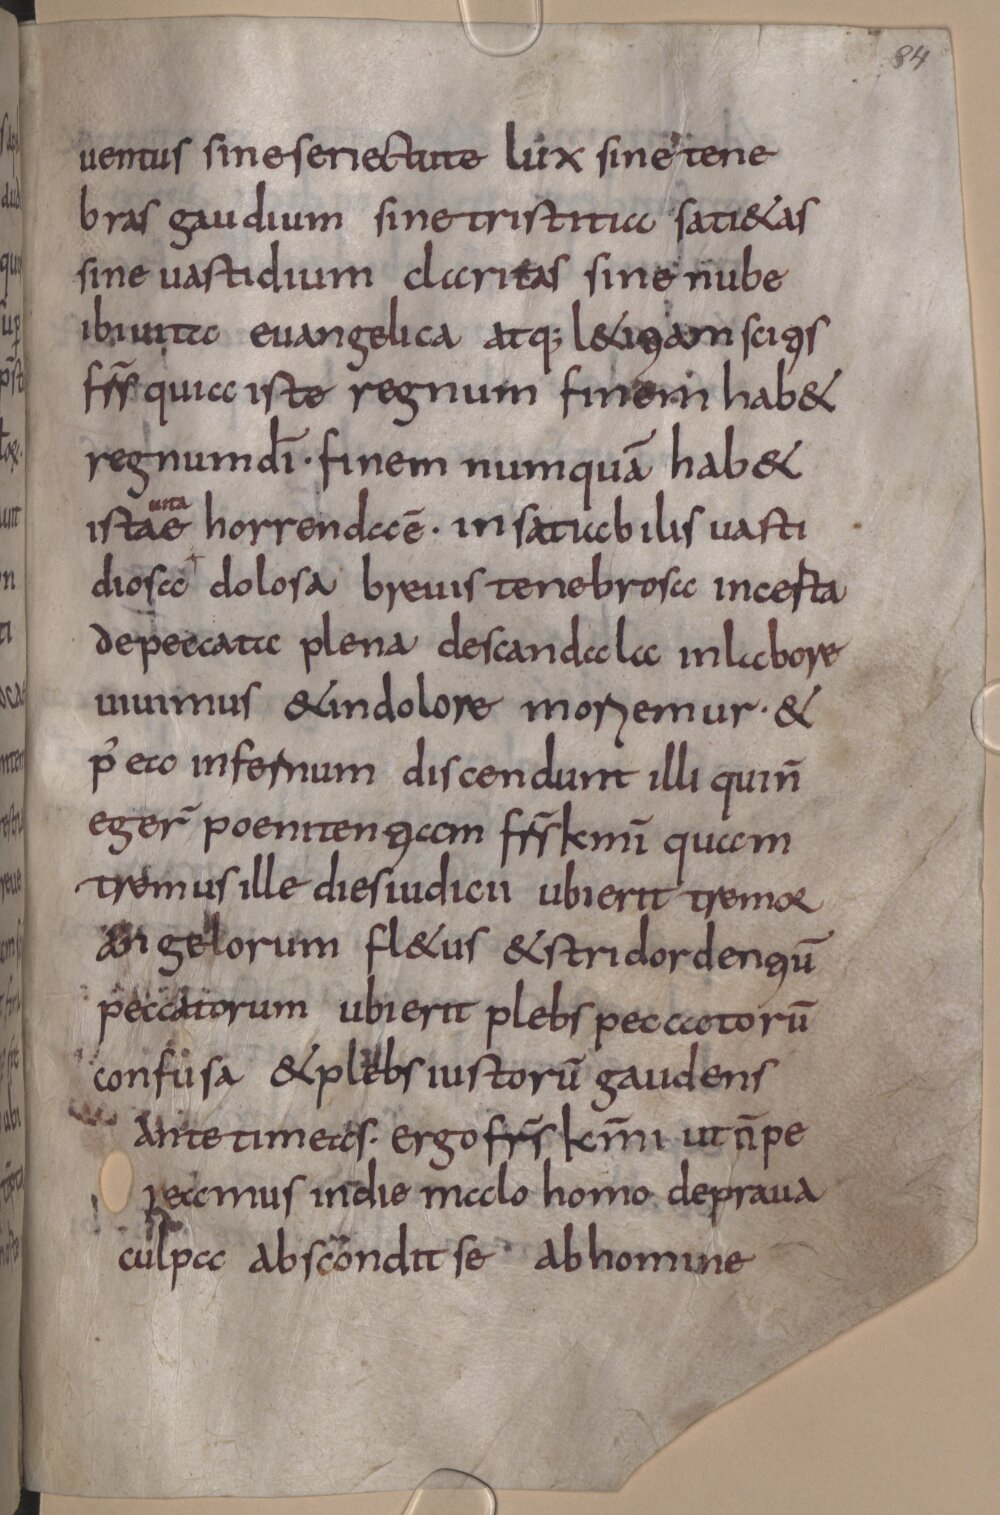 84
uentus sine senectute lux sine tene
bras gaudium sine tristitia sati&as
sine uastidium claritas sine nube
ibi uita euangelica atq; l&iꝯam sciꝯs
frs̄ quia iste regnum finem hab&
regnum dī· finem numquā hab&
uita
istae horrenda ē· insatiabilis uasti
diosa dolosa breuis tenebrosa incesta
depeccata plena descandala inlabore
uiuimus &indolore moriemur· &
p̄ ea infernum discendunt illi quin̄
eger̄ poenitenꝯam frs̄ km̄i quam
tremus ille dies iudicii ubi erit tremor
angelorum fl&us &stridor denꝯū
peccatorum ubi erit plebs peccatorū
confusa &plebs iustorū gaudens
ante timeas· ergo frs̄ km̄i ut n̄ pe
reamus indie malo homo depraua
culpa abscondit se ab homine